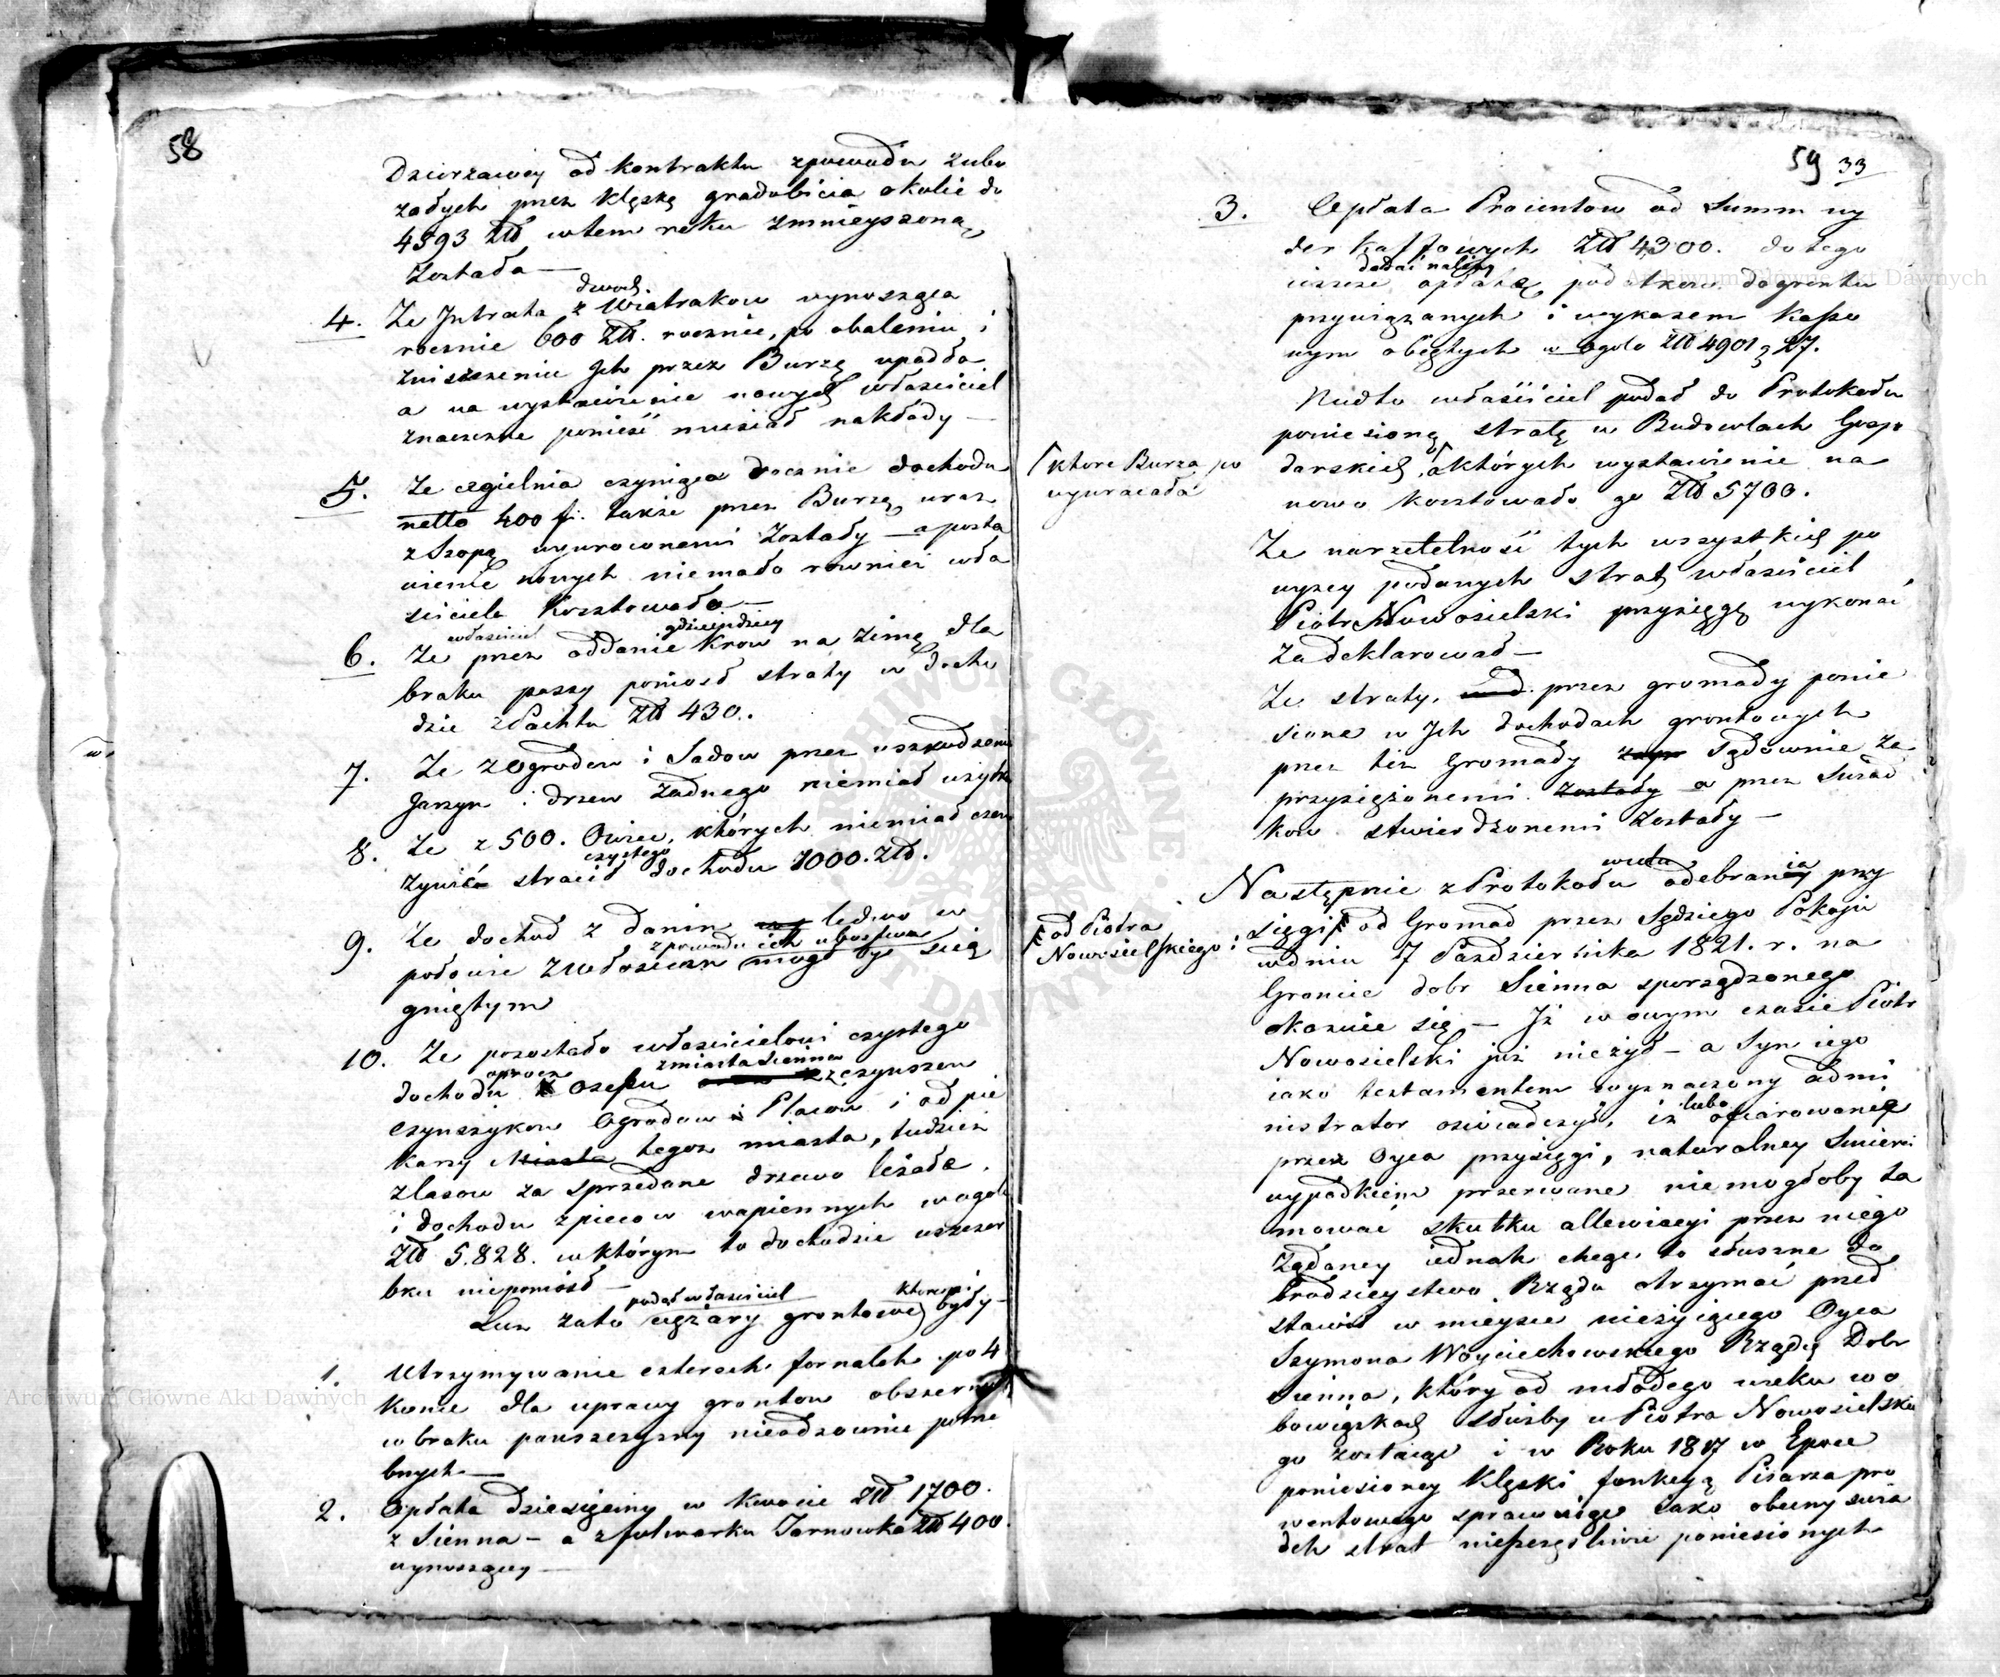 58
Dzierżawcy od kontraktu zpowodu zubo
żałych przez klęskę gradobicia okolic do
4393 Złł wtem roku zmnieyszoną
została —
4. Że Intrata z dwoch Wiatrakow wynosząca
rocznie 600 Złł. rocznie, po obaleniu i
zniszczeniu Ich przez Burzę upadła
a na wystawienie nowych właściciel
znaczne ponieść musiał nakłady —
5. Że cegielnia czyniąca rocznie dochodu
netto 400 f. także przez Burzę wraz
z Szopą wywroconemi zostały — a posta
wienie nowych niemało rownież wła
ściciela kosztowało —
6. Że właściciel przez oddanie gdzieindziey Krow na zimę dla
braku paszy poniosł straty w docho
dzie z Pachtu Złł 430.
7. Że z Ogrodow i Sadow przez uszkodzenie
Jarzyn i drzew żadnego niemiał użytku
8. Że z 500. Owiec, których niemiał czem
żywić stracił czystego dochodu 1000. Złł.
9. Że dochod z danin ledwo w
połowie z włościan zpowodu ich ubostwa mogł być ścią
gniętym
10. Że pozostało właścicielowi czystego
dochodu oprocz Osepu z miasta Sienna z czynszow
czynszykow Ogrodow i Placow i od pie
karzy Miasta tegoż miasta, tudzież
z lasow za sprzedane drzewo leżałe
i dochodu z piecow wapiennych w ogole
Złł 5.828. w którym to dochodzie uszczer
bku nieponiosł —
Lecz zato podał właściciel ciężary gruntowe, ktoremi były —
1. Utrzymywanie czterech fornalek po 4
konie dla uprawy gruntow obszernych
w braku pańszczyzny nieodzownie potrze
bnych —
2. Opłata dziesięciny w kwocie Złł 1700.
z Sienna — a z folwarku Jarnowka Złł 400.
wynoszącey —
59 33
3. Opłata Procentow od Summ wy
der kaffowych Złł 4,300. do tego
ieszcze dodać należy opłatę podatkow do gruntu
przywiązanych i wykazem Kasso
wym obiętych w ogole Złł 4901 g 27.
Nadto właściciel podał do Protokołu
poniesioną stratę w Budowlach Gospo
darskich, których wystawienie na
nowo kosztowało go Złł 5700.
ktore Burza po
wywracała
Że narzetelność tych wszystkich po
wyżey podanych strat właściciel
Piotr Nowosielski przysięgę wykonać
zadeklarował —
Że straty, przez gromady ponie
sione w Ich dochodach gruntowych
przez też Gromady Sądownie za
przysiężonemi zostały a przez Świad
kow stwierdzonemi zostały —
Następnie z Protokołu odebrania przy
sięgi od Gromad przez Sędziego Pokoju
od Piotra
Nowosielskiego i
wdniu 7 Października 1821. r. na
Gruncie dobr Sienna sporządzonego
okazuie się — Iż w owym czasie Piotr
Nowosielski już nieżył — a Syn iego
iako testamentem wyznaczony admi
nistrator oświadczył, iż lubo ofiarowane
przez Oyca przysięgi, naturalney śmierci
wypadkiem przerwane niemogłoby ta
mować skutku allewiacyi przez niego
żądaney iednak chcąc to słuszne do
brodzieystwo Rządu otrzymać przed
stawił w mieysce nieżyiącego Oyca
Szymona Woyciechowskiego Rządcę Dobr
Sienna, który od młodego wieku w o
bowiązkach służby u Piotra Nowosielskie
go zostaiąc i w Roku 1817 w Epoce
poniesioney klęski funkcyą Pisarza pro
wentowego sprawuiąc iako obecny świa
dek strat nieszczęśliwie poniesionych
Archiwum Główne Akt Dawnych
Archiwum Główne Akt Dawnych
ARCHIWUM GŁÓWNE AKT DAWNYCH